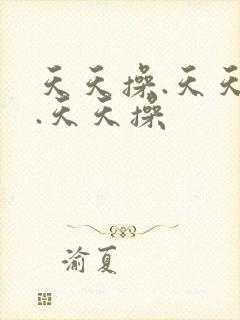 天天操.天天
.天天操
渝夏